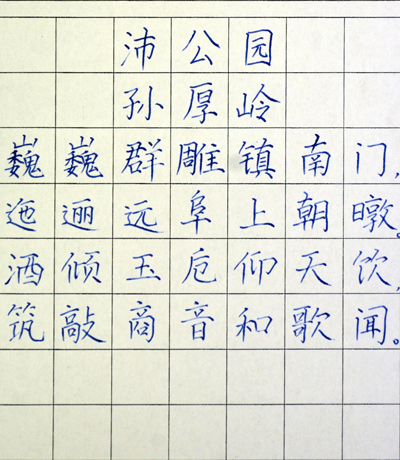 沛公园
孙厚岭
巍巍群雕镇南门，
迤逦远阜上朝暾。
酒倾玉卮仰天饮，
筑敲商音和歌闻。